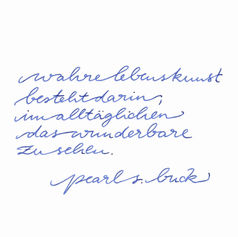 wahre lebenskunst
besteht darin,
im alltäglichen
das wunderbare
zu sehen.
pearl s. buck